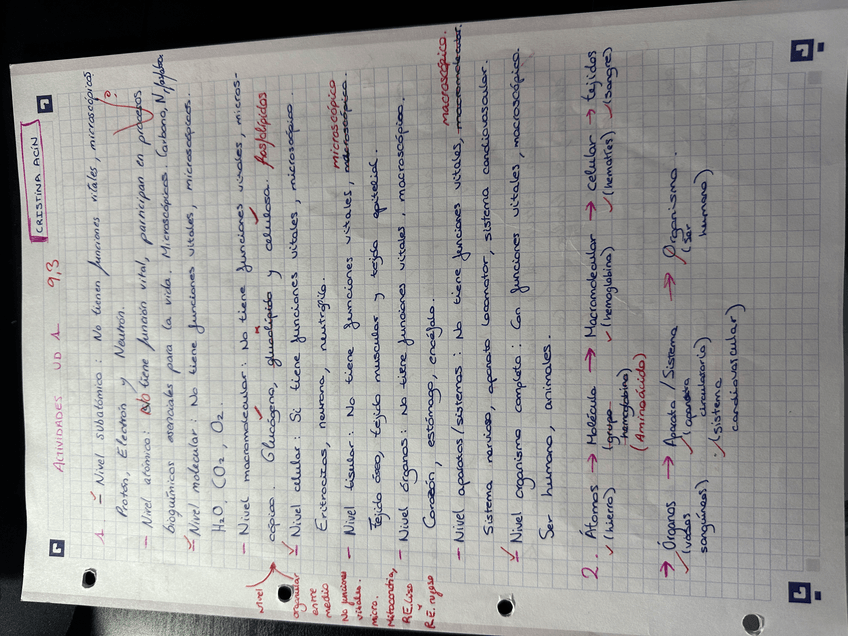 CRISTINA ACÍN
ACTIVIDADES UD 1 9,3
1 - Nivel subatómico: No tienen funciones vitales, microscópicos
Protón, Electrón y Neutrón.
- Nivel atómico: No tiene función vital, participan en procesos ?
bioquímicos esenciales para la vida. Microscópicos. Carbono, N,
- Nivel molecular: No tiene funciones vitales, microscópicos.
H2O, CO2, O2.
- Nivel macromolecular: No tiene funciones vitales, micros-
cópico. Glucógeno, glucolípido y celulosa. fosfolípidos
nivel
organular
entre
medio
No funciones
vitales.
micro.
Mitocondria,
R.E. liso
y
R.E. rugoso
- Nivel celular: Si tiene funciones vitales, microscópico.
Eritrocitos, neurona, neutrófilo.
- Nivel tisular: No tiene funciones vitales, microscópico.
Tejido óseo, tejido muscular y tejido epitelial.
- Nivel órganos: No tiene funciones vitales, macroscópico.
Corazón, estómago, encéfalo.
- Nivel aparatos/sistemas: No tiene funciones vitales, macromolecular. macroscópico.
Sistema nervioso, aparato locomotor, sistema cardiovascular.
- Nivel organismo completo: Con funciones vitales, macroscópico.
Ser humano, animales.
2. Átomos → Molécula → Macromolecular → celular → tejidos
(hierro) (grupo hemoglobina) (hemoglobina) (hematíes) (sangre)
(Aminoácido)
→ Órganos → Aparato/Sistema → Organismo.
(vasos sanguíneos) (aparato circulatorio) (ser humano)
(sistema cardiovascular)